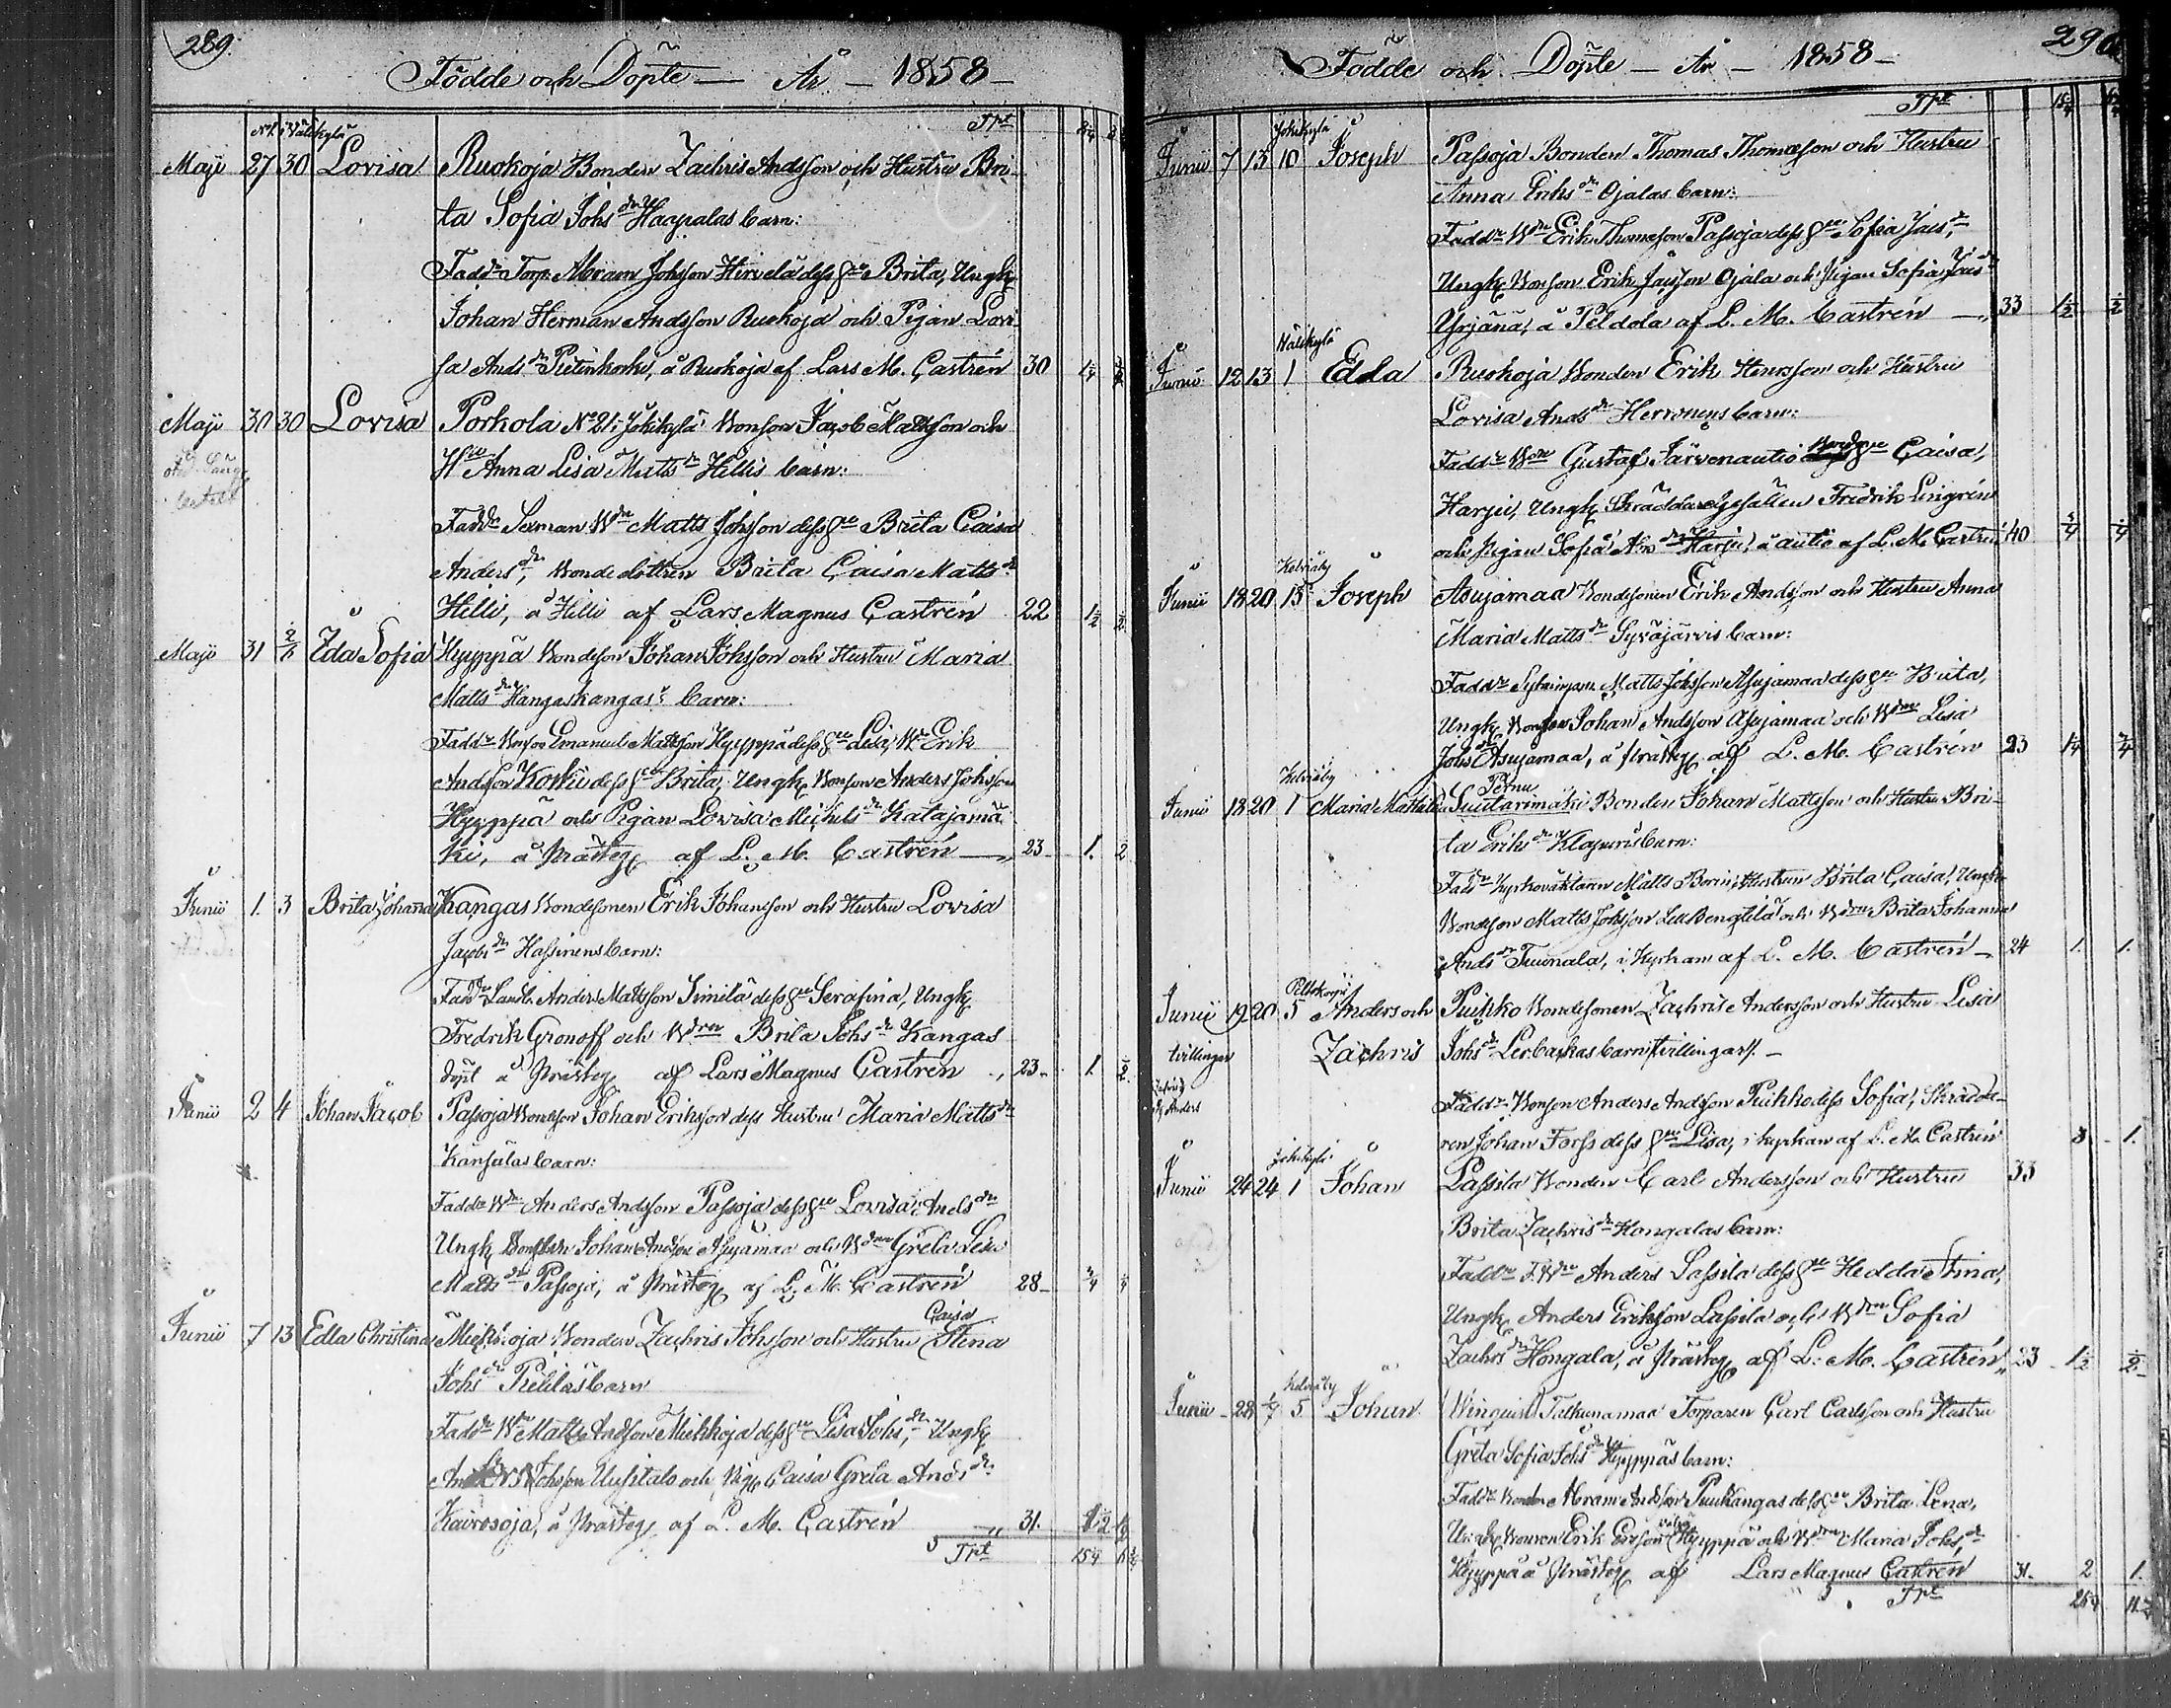 289.
Födde och Döpte — År — 1858 —
Trpt
Maji 27 30 Lovisa Ruokoja Bonden Zachris Andsson och Hustru Bri-
ta Sofia Johs dr Haapalas barn:
Faddr Torp. Abram Johsson Hirvelä dess hu Brita, Ungk
Johan Herman Andsson Ruokoja och Pigan Lovi-
sa Ands dr Pietinkorhi, å Ruokoja af Lars M. Castrén 30
Maji 30 30 Lovisa Porhola No 21 i Jokikylä Bonson Jacob Mattsson och
Hu Anna Lisa Matts dr Hillis barn:
Faddr Sexman Bdn Matts Johsson dess hu Brita Caisa
Anders dr, Bondedottren Brita Caisa Matts dr
Hilli, å Hilli af Lars Magnus Castrén 22 1½ ½
Maji 31 2/6 Eda Sofia Hyyppä Bondeson Johan Johsson och Hustru Maria
Matts dr Hangaskangas's barn:
Faddr Bonson Emanuel Mattsson Hyyppä dess hu Lisa, Bn Erik
Andsson Koski dess hu Brita, Ungk Bonson Anders Johsson
Hyyppä och Pigan Lovisa Michels dr Katajamä-
ki, å Prästeg af L. M. Castrén — 23 1. 2
Junii 1. 3 Brita Johanna Kangas Bondesonen Erik Johansson och Hustru Lovisa
Jacobs dr Hassinens barn:
Faddr Landb. Anders Mattsson Simila dess hu Serafina, Ungk
Fredrik Gronoff och Bdrn Brita Johs dr Kangas
döpt å Prästeg af Lars Magnus Castrén 23 1. ½
Junii 2 4 Johan Jacob Passoja Bondson Johan Eriksson dess Hustru Maria Matts dr
Kansalas barn:
Faddr Bdn Anders Andsson Passoja dess hu Lovisa Ands dr
Ungk Bonson Johan Andsson Asujamaa och Bdrn Greta Lisa
Matts dr Passoja, å Prästeg af L. M. Castrén 28 ¾
Junii 7 13 Edla Christina Miekkoja Bonden Zachris Johsson och Hustru Caisa Stina
Johs dr Pelilas barn
Faddr Bdn Matts Andsson Miekkoja dess hu Lisa Johs dr, Ungk
Johsson Uusitalo och Pig. Caisa Greta Ands dr
Kairosoja, å Prästeg af L. M. Castrén 31. 1½
Trpt 15¼
290
Födde och Döpte — År — 1858 —
Trpt
Jokikylä
Junii 7 13 10 Joseph Passoja Bonden Thomas Thomasson och Hustru
Anna Eriks dr Ojalas barn:
Faddr Bdn Erik Thomasson Passoja dess hu Sofia Jacs dr,
Ungk Bonson Erik Jacsson Ojala och Pigan Sofia Jacs dr
Yrjänä, å Peldola af L. M. Castrén — 33 1½ ½
Wälikylä
Junii 12 13 1 Edla Ruokoja Bonden Erik Henrsson och Hustru
Lovisa Ands dr Herronens barn:
Faddr Bdn Gustaf Järvenautio hu Caisa,
Harju, Ungk Skräddaregesällen Fredrik Lingrén
och Pigan Sofia Abr dr Harju, å autio af L. M. Castrén 40
Kelviåby
Junii 18 20 15 Joseph Asujamaa Bondesonen Erik Andsson och Hustru Anna
Maria Matts dr Syväjärvis barn:
Faddr Matts Johsson Asujamaa dess hu Brita,
Ungk Bonson Johan Andsson Asujamaa och Bdrn Lisa
Johs dr Asujamaa, å Prästeg af L. M. Castrén 23
Kelviåby
Junii 18 20 1 Maria Mathilda Suutarimäki Bonden Johan Mattsson och Hustru Bri-
ta Eriks dr Klapuris barn:
Faddr Kyrkoväktaren Matts Borin, Hustrun Brita Caisa, Ungk
Bondson Matts Johsson Lill Bengtilä och Bdrn Brita Johanna
Ands dr Tuunala, i Kyrkan af L. M. Castrén — 24 1. 1.
Junii 19 20 5 Anders och Puihko Bondesonen Zachris Andersson och Hustru Lisa
tvillingar Zachris Johs dr Lerbackas barn (tvillingar). —
Faddr Bonson Anders Andsson Puihko dess Sofia, Skrädda-
ren Johan Forss dess hu Lisa, i kyrkan af L. M. Castrén 3 1.
Jokikylä
Junii 24 24 1 Johan Lassila Bonden Carl Andersson och Hustru 33
Brita Zachris dr Hongalas barn:
Faddr F. Bdn Anders Lassila dess hu Hedda Stina,
Ungk Anders Eriksson Lassila och Bdrn Sofia
Zachrs dr Hongala, å Prästeg af L. M. Castrén 23 1½ ½
Kelviåby
Junii 28 1/7 5 Johan (Winqvist) Talkunamaa Torparen Carl Carlsson och Hustru
Greta Sofia Johs dr Hyyppäs barn:
Faddr Bonden Abram Andsson Puukangas dess hu Brita Lena,
Ungk Bonson Erik Ersson Hyyppä och Bdrn Maria Johs dr
Hyyppä å Prästeg af Lars Magnus Castrén 31. 2 1.
Trpt